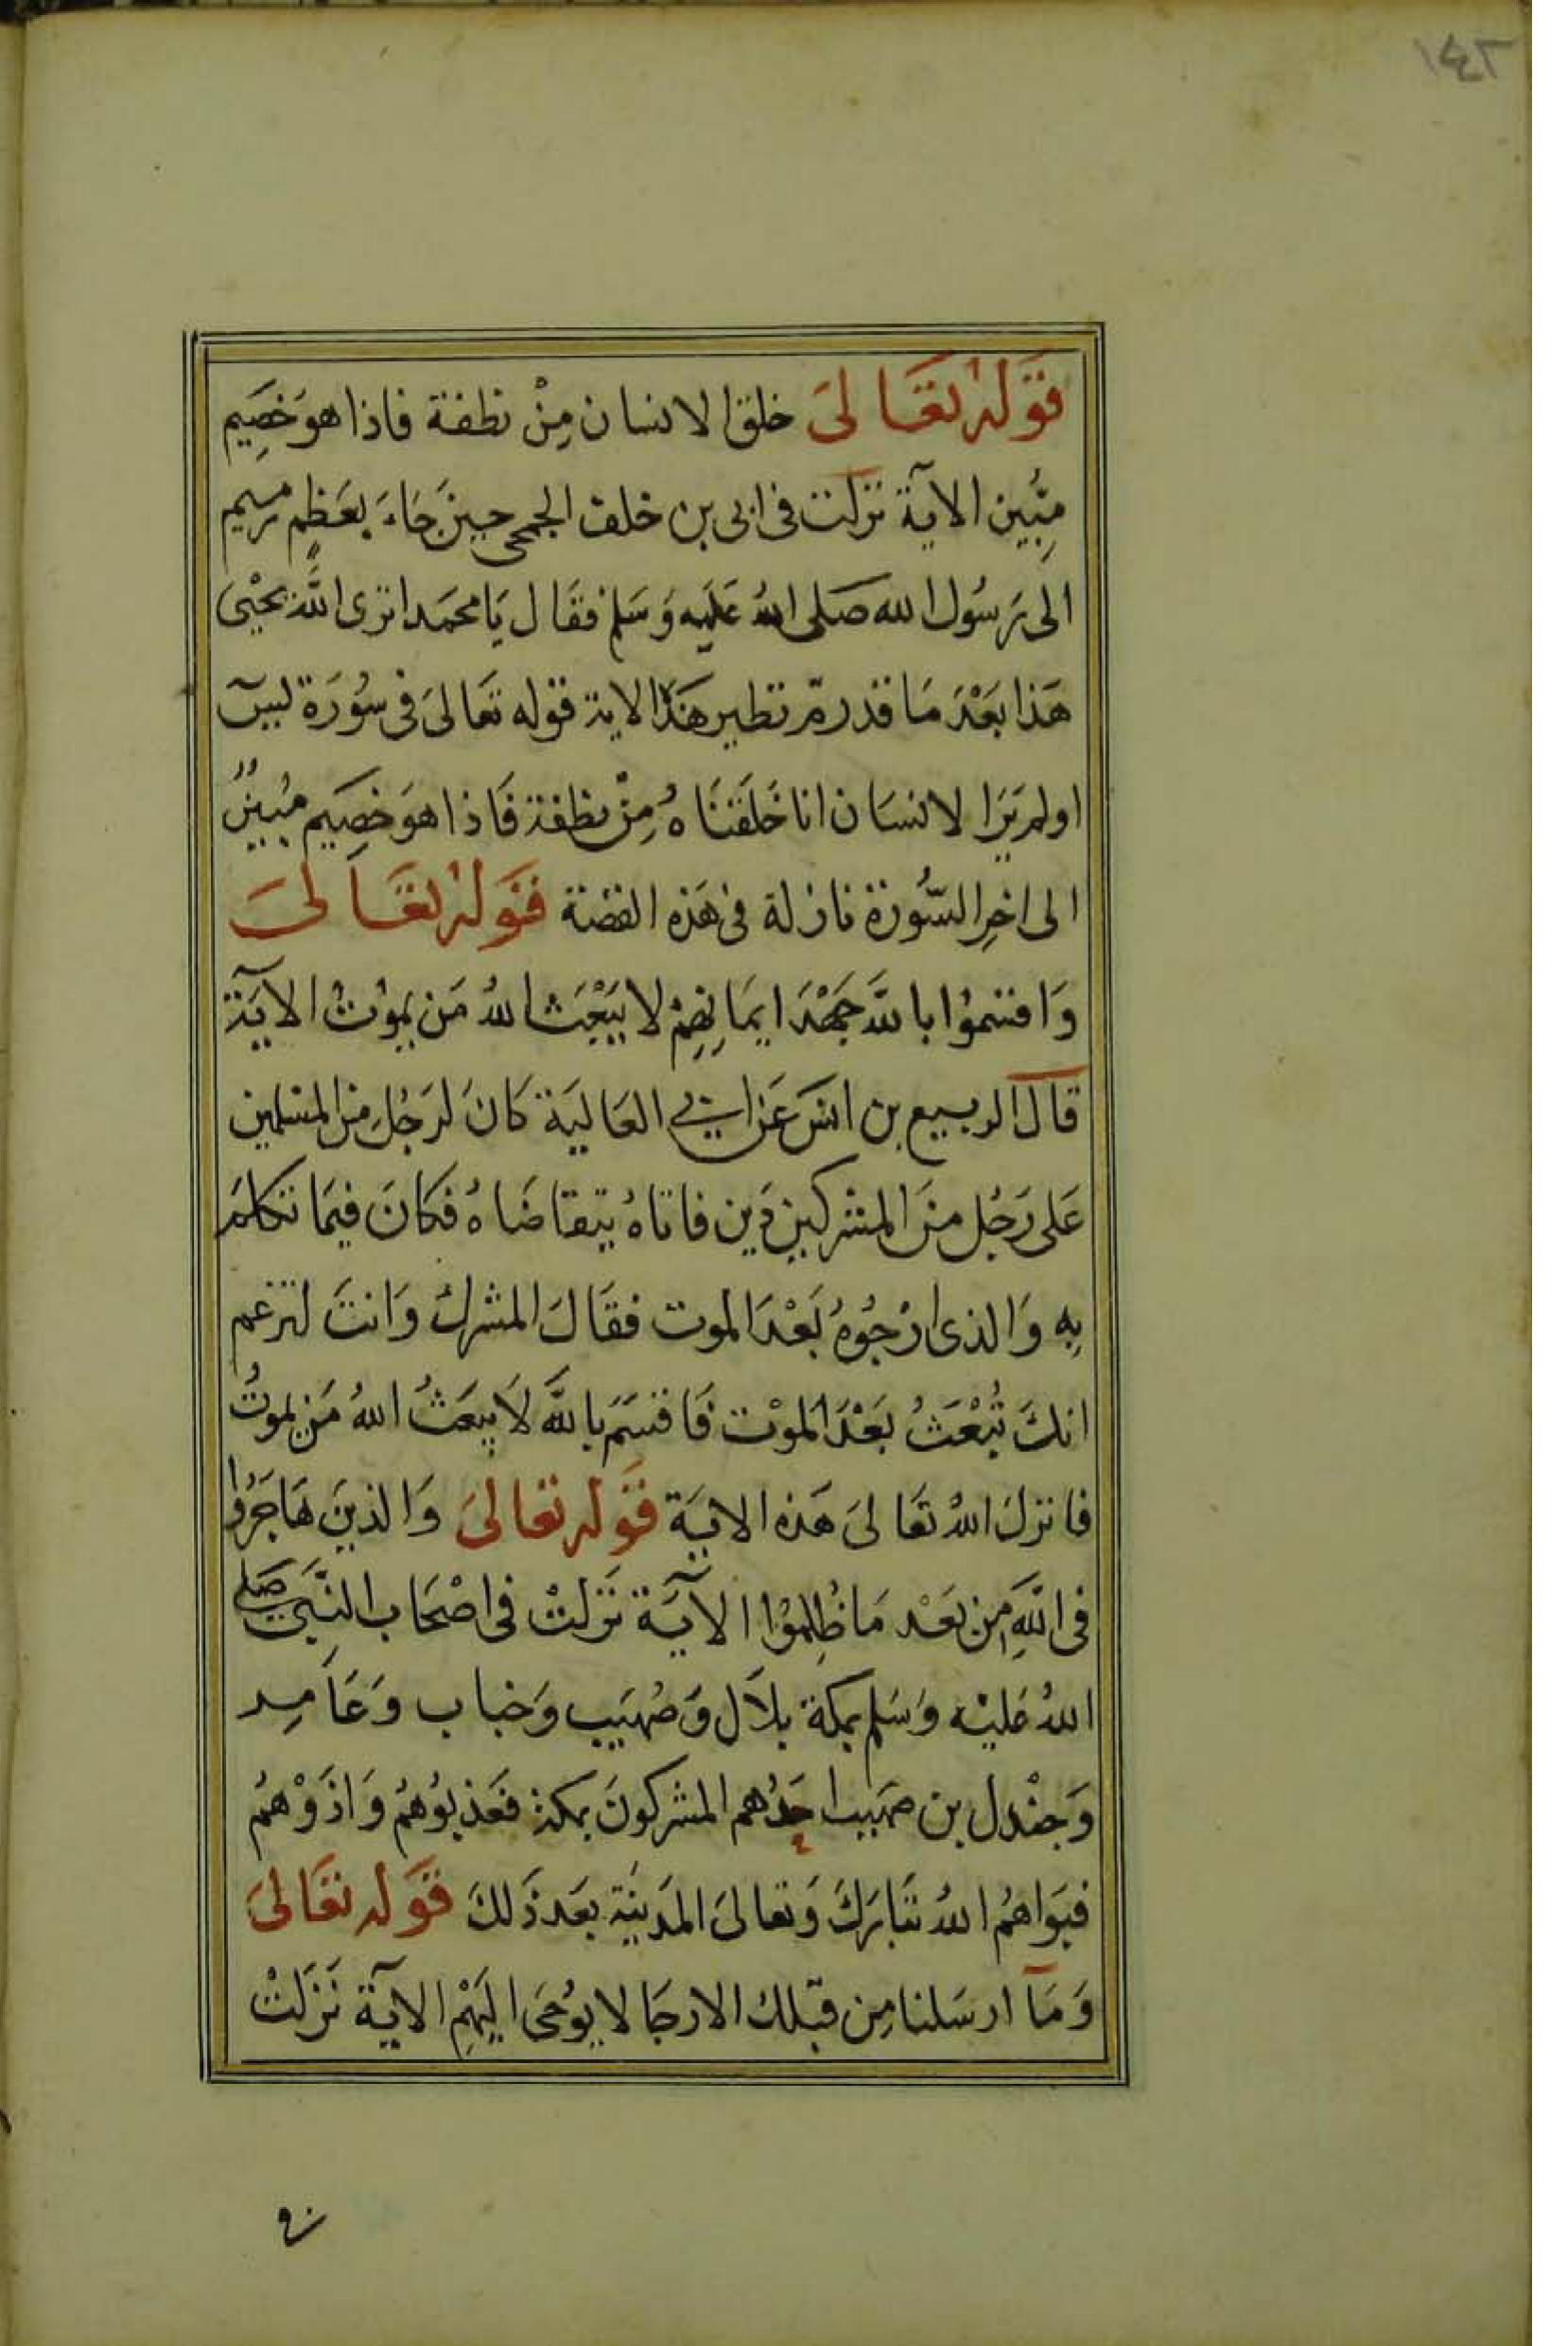 ١٤٢
قَوَلهُ تعَالىَ خلق الانسان مِنْ نطفة فاذا هوَ خصَيم
مِبُّين الآية نزلت في ابي بن خلف الجمحى حينَ جَاءَ بعَظِم رميم
الى رَسوُل الله صَلى اللهُ عَلَيه وَسَلم فقَال يَا محمَد اترى اللَّه يحْيىَ
هَذا بَعْدَ مَا قدرمّ نظير هَذه الاية قوله تعَالىَ في سُورَة ليس
اولم يَرَ الانسَان انا خَلَقنَاهُ مِنْ نطفة فَاذا هوَ خصِيَم مُبينٌ
الى اخِر السُّورَة نازلة في هَذه القصَة قوَلهُ تعَالىَ
وَاقسَموُا باللَّه جَهْدَ ايمَانِهِمْ لا يَبْعَث اللهُ مَن يموُتُ الآيَة
قال الربيع بن انسَ عَن ابي العَاليَة كَانَ لرَجُلِ مِن المسلمين
عَلى رَجُل منَ المشركين دَين فاتاهُ يتقاضَاهُ فكانَ فيمَا تكلمَ
بِه وَالذى ارْجُوهُ بَعْدَ الموت فقَالَ المشركُ وَانتَ لتزعم
انكَ تُبْعَثُ بَعْدَ الموْت فَاقسَمَ باللَّه لاَ يبعَثُ اللهُ مَن يموتُ
فانزلَ اللهُ تعَالىَ هَذه الايَة قَوَله تعَالىَ وَالذينَ هَاجَرُوا
في اللَّهِ مِن بَعَدْ مَا ظُلِموُا الآيَة نَزلتْ في اصْحَاب النَّبَي صَلى
اللهُ عَليْه وَسَلم بمكة بلاَل وَصُهَيب وَخباب وَعَامِر
وَجنْدل بن صهَيب اخَذُهم المشركونَ بمكة فعَذبوُهمُ وَاذَوْهمُ
فبَواهمُ اللهُ تبَارَكَ وَتعالىَ المَدينة بعَد ذَلكَ قوَله تعَالىَ
وَمَآ ارسَلنا مِن قبَلك الا رجَالا يوُحىَ اليَهْمِ الآيَة نَزَلتْ
في